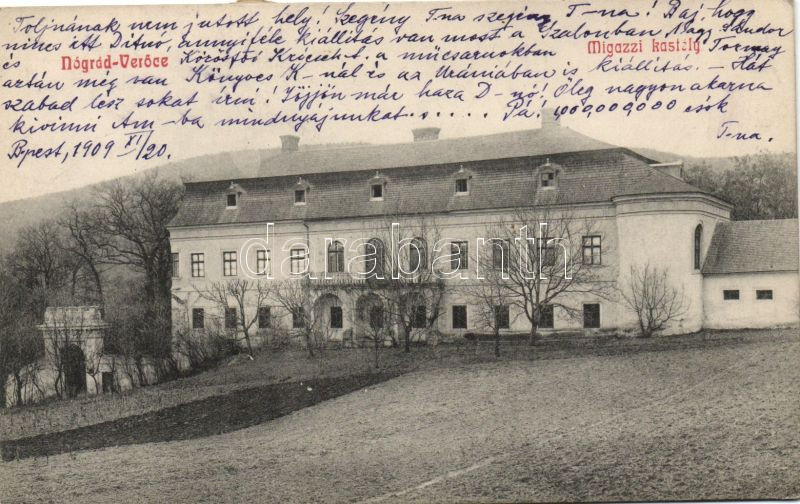 Toljnának nem jutott hely! Szegény T-na szegény T-na! Baj, hogy
nincs itt Ditnó, annyiféle kiállítás van most a Szalonban Nagy Sándor
és Nógrád-Verőce Körösfői Kriesch, a műcsarnokban Migazzi kastély Tornay
aztán még van Könyves K-nál és az Urániában is kiállítás. - Hát
szabad lesz sokat írni! Jőjjön már haza D-nó! Öleg nagyon akarna
kivinni Am-ba mindnyájunkat..... Pá! 1000,000,000 csók
Bpest, 1909 XI/20. T-na.
darabanth